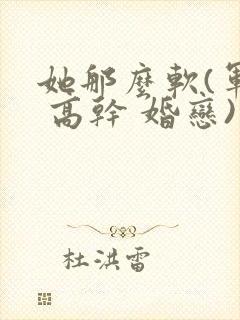 她那麼軟(軍
高幹 婚戀)
杜洪雷